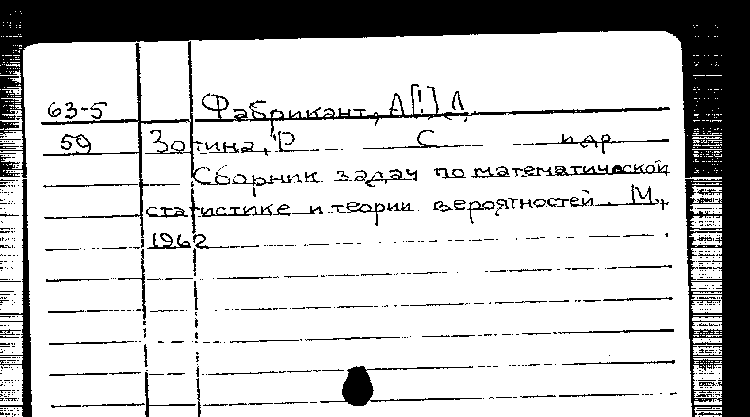 63-5 Фабрикант, А[!] Д.
59 Зотина, Р С и др
Сборник задач по математической
статистике и теории вероятностей. М.,
1962